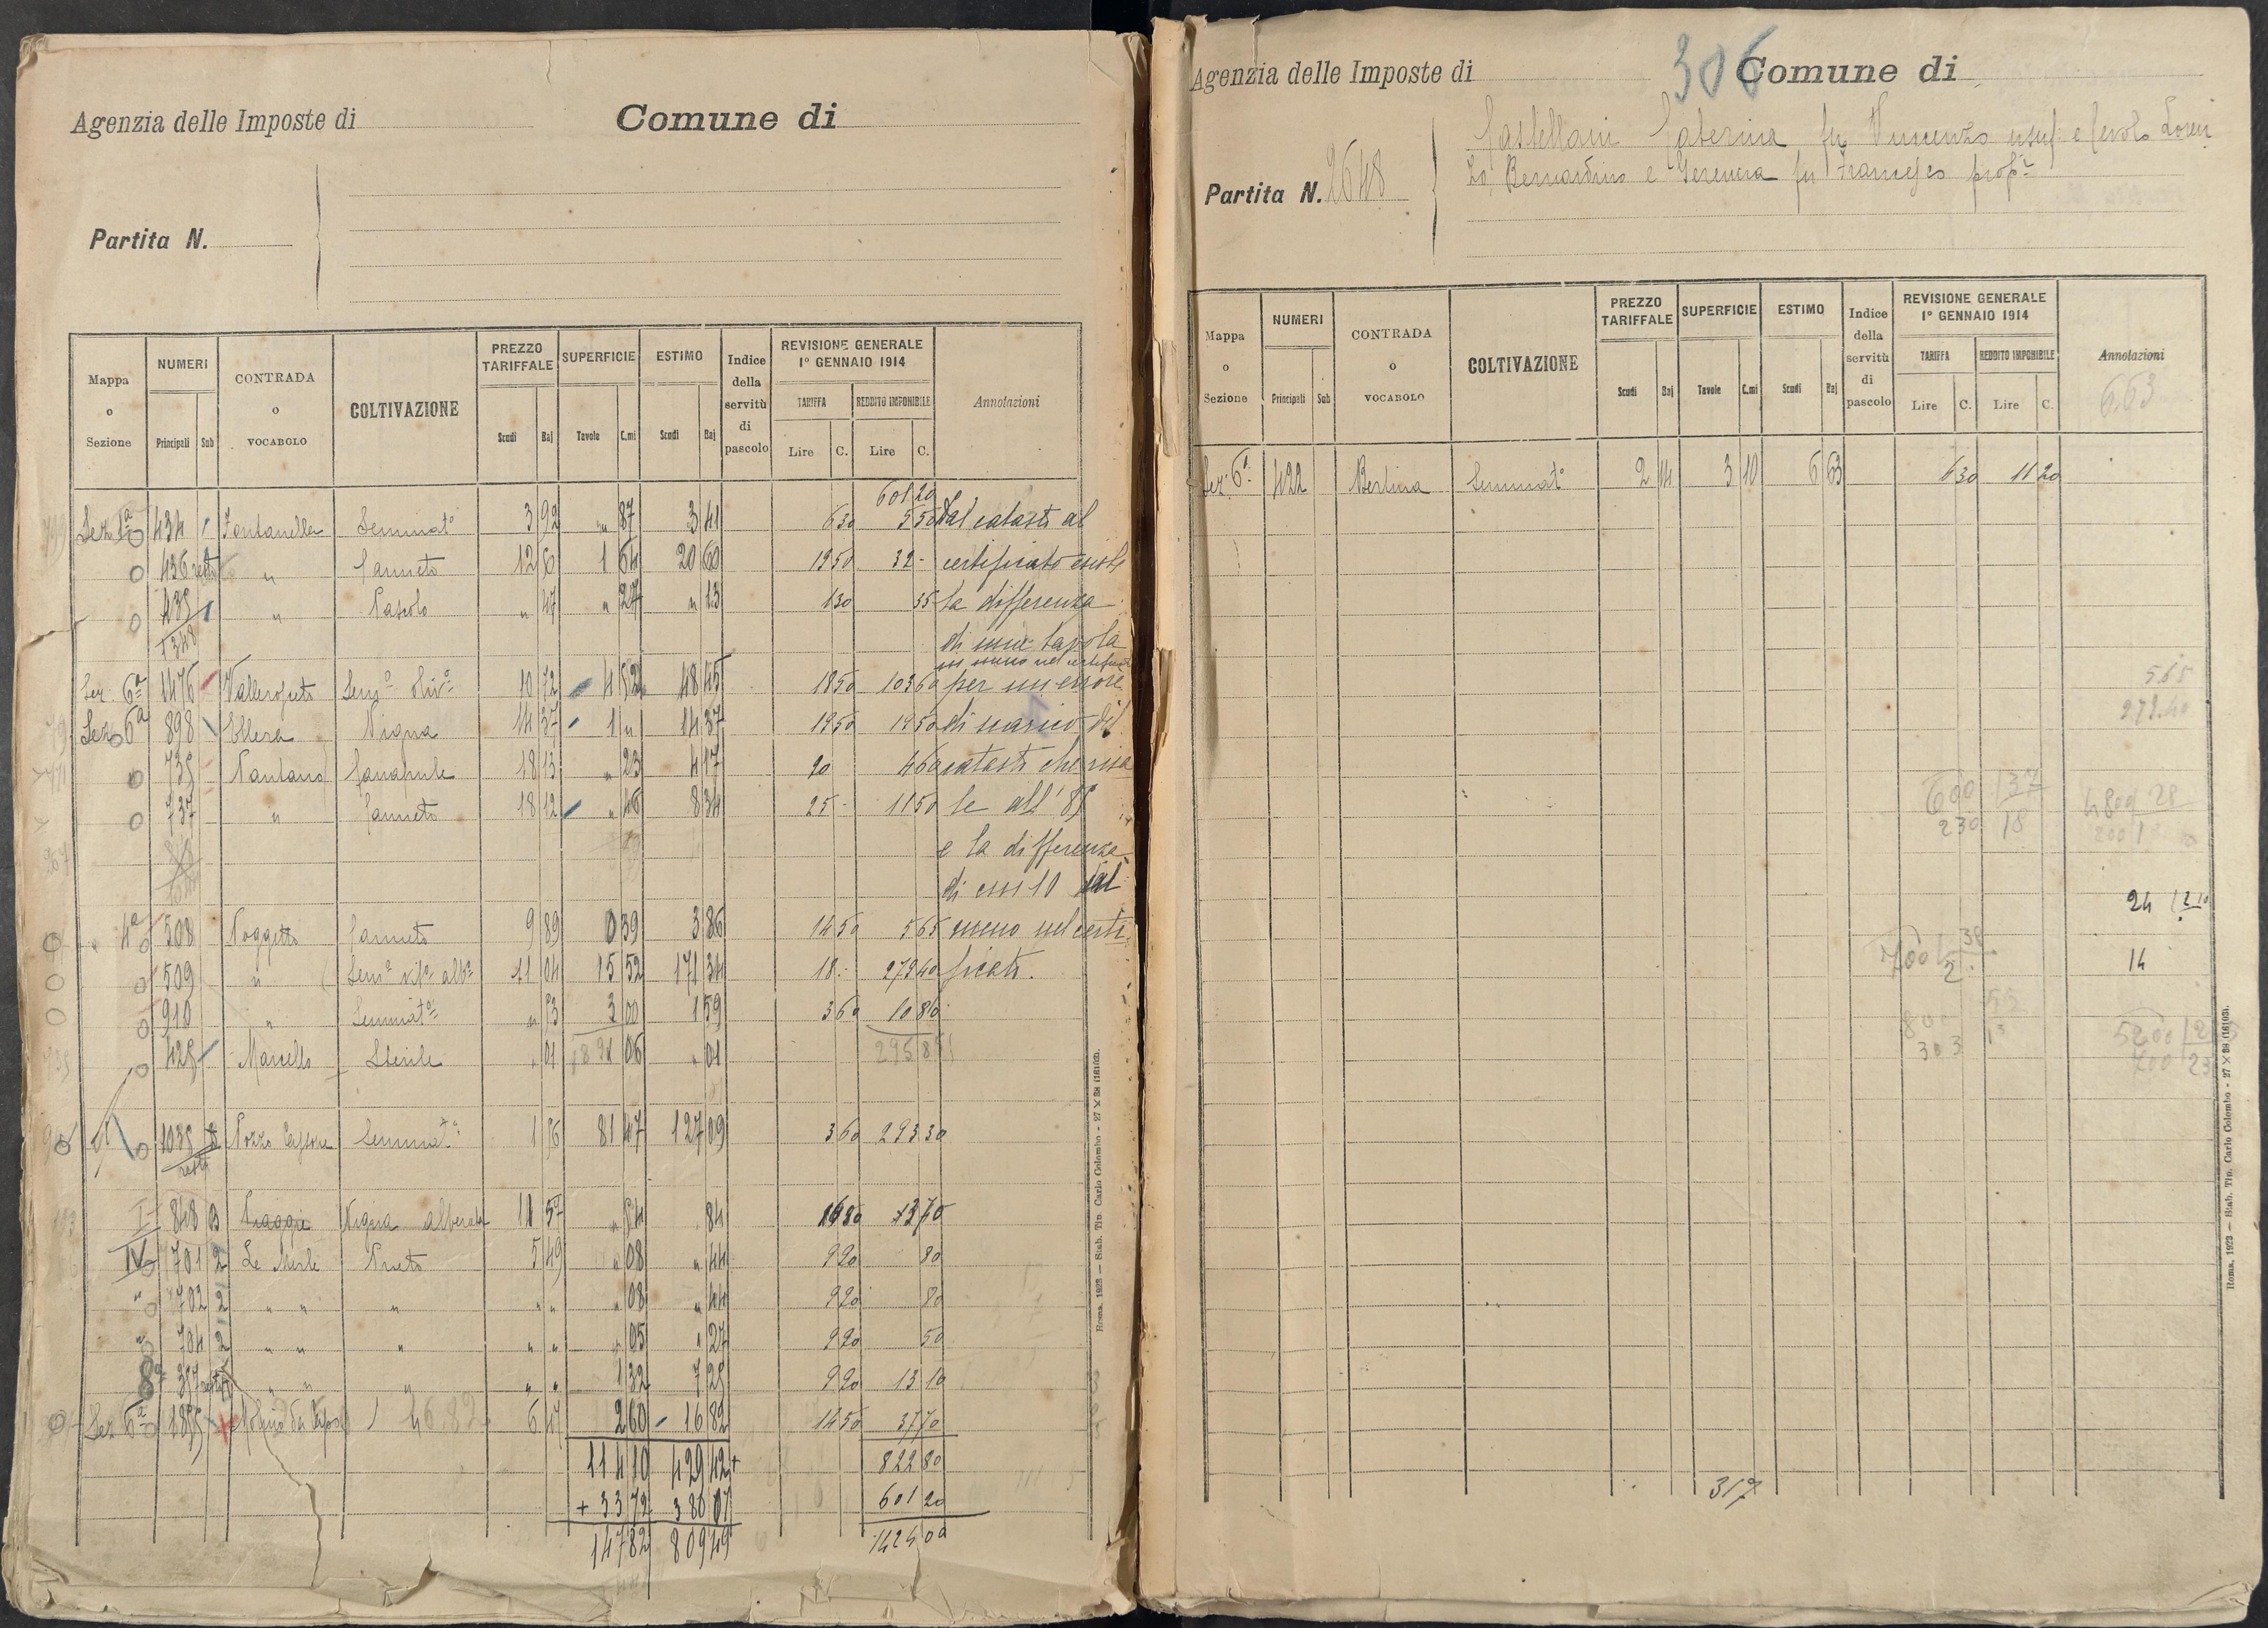 Agenzia delle Imposte di
Comune di
Partita N.
Mappa o Sezione
NUMERI
Principali
Sub
CONTRADA o VOCABOLO
COLTIVAZIONE
PREZZO TARIFFALE
Scudi
Baj
SUPERFICIE
Tavole
C.mi
ESTIMO
Scudi
Baj
Indice della servitù di pascolo
REVISIONE GENERALE 1º GENNAIO 1914
TARIFFA
REDDITO IMPONIBILE
Lire
C.
Lire
C.
Annotazioni
601 20
434 Fontanella Seminato 3 92 " 87 3 41 6 30 5 50 Dal catasto al
436 resto " Canneto 12 60 1 64 20 60 19 50 32 - certificato esiste
435 " Pascolo " 47 " 27 " 13 1 30 35 la differenza
1348 di una tavola
in meno nel certificato
Sez. 6ª 1476 10 72 4 52 48 45 18 50 103 60 per un errore
Sez. 6ª 898 Ellera Vigna 14 37 1 " 14 37 19 50 19 50 di scarico del
735 Pantano Canapule 18 13 " 23 4 17 20 4 60 catasto che risa
737 " Canneto 18 12 " 46 8 34 25 - 11 50 le all' 85
e la differenza
di cent 10 in
" 4ª 508 Poggetto Canneto 9 89 0 39 3 86 14 50 5 65 meno nel certi
509 " 11 04 15 52 171 34 18 - 279 40 ficato.
910 " Seminatº " 53 3 00 1 59 3 60 10 80
425 Marcello Sterile " 01 06 " 01 295 85
1035 resto Pozzo Seminatº 1 56 81 47 127 09 3 60 293 30
I 848 B Piaggie Vigna alberata 11 57 " 84 84 16 30 13 70
IV 701 2 Le Merle Prato 5 49 " 08 " 44 9 20 80
" 702 2 " " " " " " 08 " 44 9 20 80
" 704 2 " " " " " " 05 " 27 9 20 50
8ª 357 resto " " " " " 1 32 7 25 9 20 13 10
Sez 6ª 1895 Molino da Capo 46.82 6 47 2 60 16 82 14 50 37 70
114 10 429 42 + 822 80
+ 33 72 380 07 601 20
147 82 809 49 1424 00
Roma, 1923 — Stab. Tip. Carlo Colombo - 27 × 38 (16103).
306
Agenzia delle Imposte di
Comune di
Partita N. 2648
Castellani Caterina fu Vincenzo usuf. e Cevolo Loren
zo, Bernardino e Genevra fu Francesco propri
Mappa o Sezione
NUMERI
Principali
Sub
CONTRADA o VOCABOLO
COLTIVAZIONE
PREZZO TARIFFALE
Scudi
Baj
SUPERFICIE
Tavole
C.mi
ESTIMO
Scudi
Baj
Indice della servitù di pascolo
REVISIONE GENERALE 1º GENNAIO 1914
TARIFFA
REDDITO IMPONIBILE
Lire
C.
Lire
C.
Annotazioni
663
Sez. 6ª 422 Bertina Seminatº 2 14 3 10 6 63 6 30 11 20
565
279.40
600 37
230 18
4800 28
24
700 38
2
14
800
303
5200
400 23
317
Roma, 1923 — Stab. Tip. Carlo Colombo - 27 × 38 (16103).